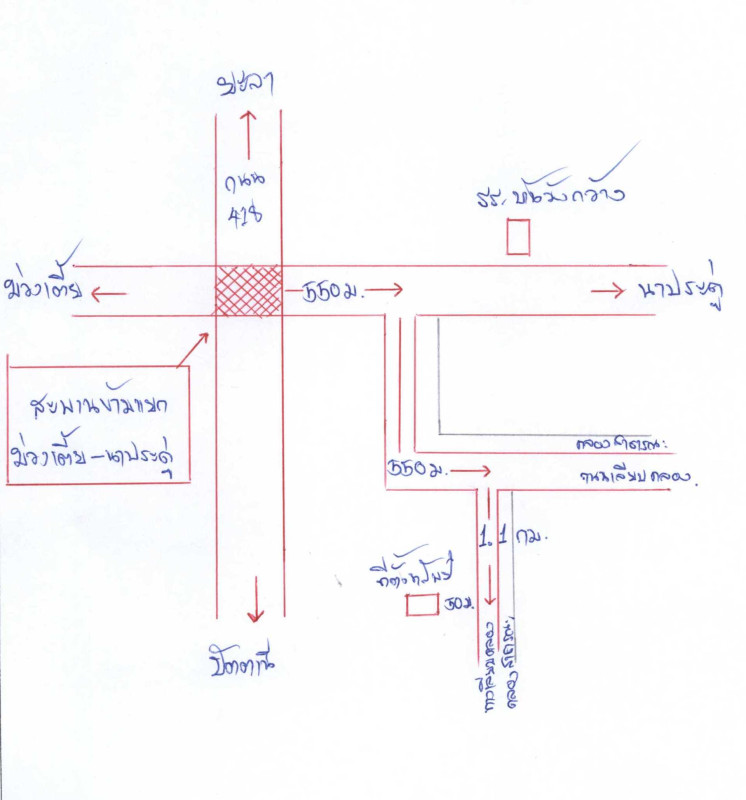 ยะลา
ถนน
418
รร.บ้านวังกว้าง
ม่วงเตี้ย
550 ม.
นาประดู่
สะพานข้ามแยก
ม่วงเตี้ย-นาประดู่
คลองสาธารณะ
550 ม.
ถนนเลียบคลอง.
1.1 กม.
ที่ตั้งทรัพย์
50 ม.
ปัตตานี